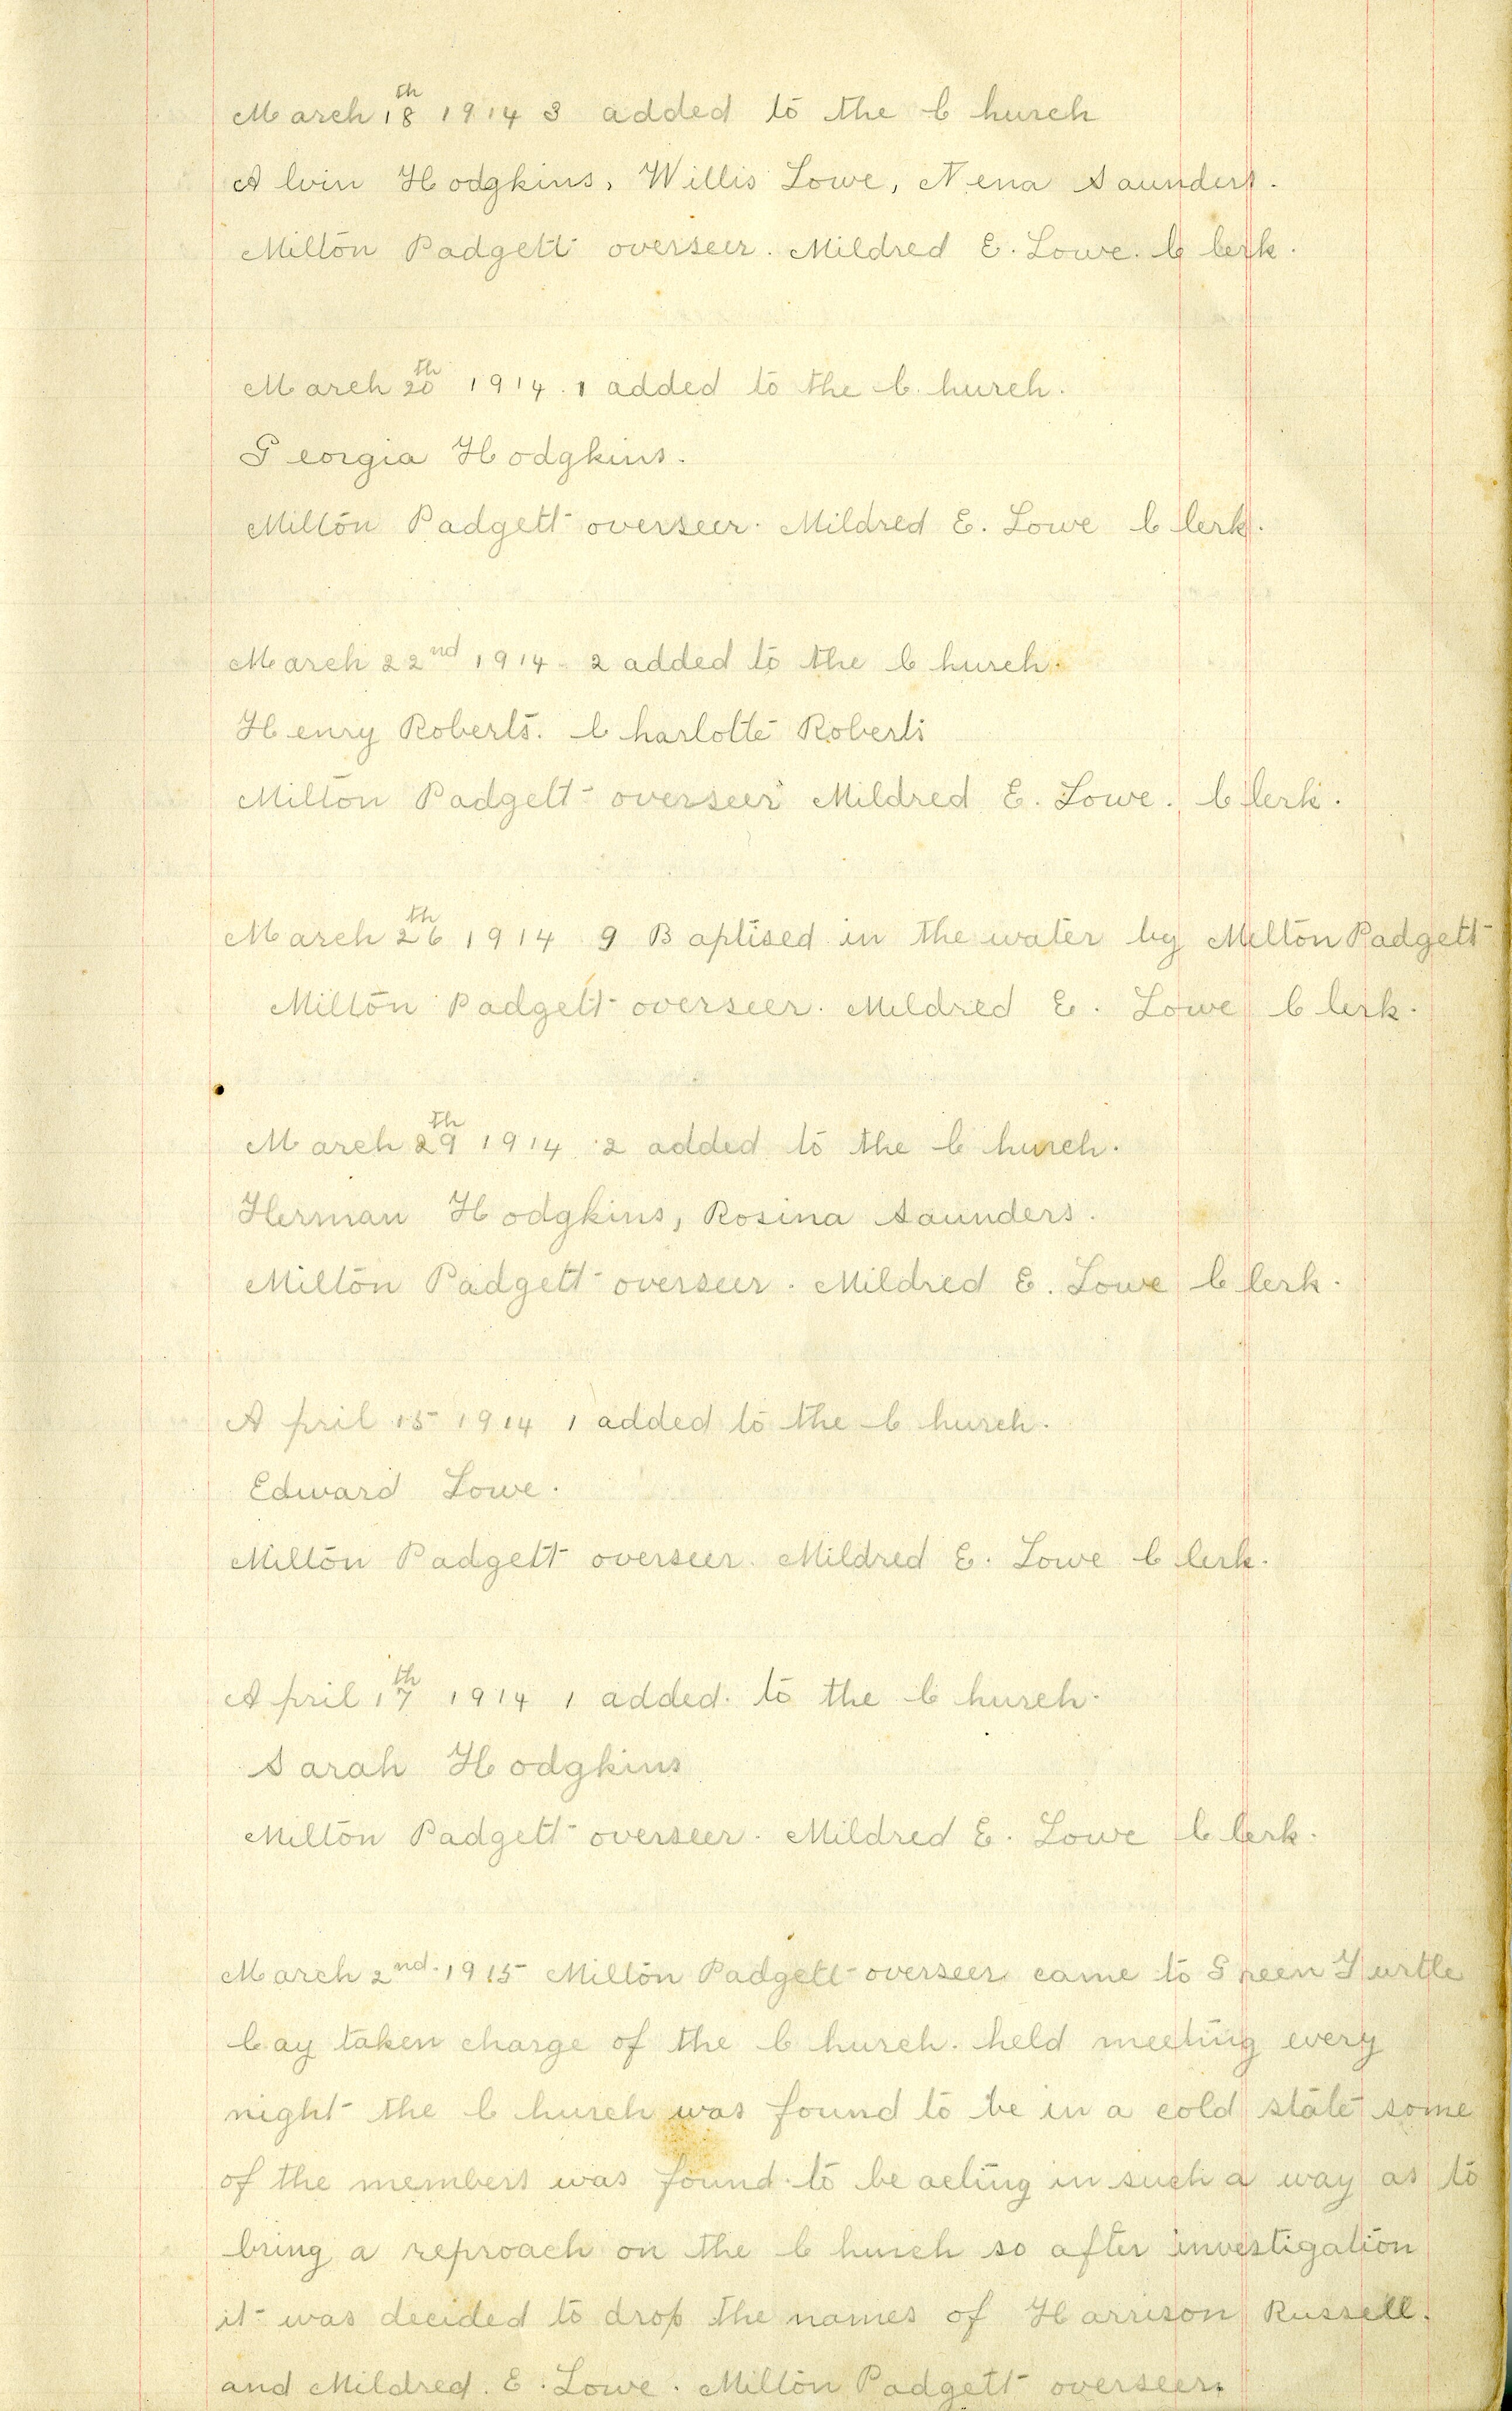 March 18th 1914 3 added to the Church
Alvin Hodgkins, Willis Lowe, Nena Saunders.
Milton Padgett overseer. Mildred E. Lowe. Clerk.
March 20th 1914. 1 added to the Church.
Georgia Hodgkins.
Milton Padgett overseer. Mildred E. Lowe Clerk.
March 22nd 1914 - 2 added to the Church.
Henry Roberts. Charlotte Roberts
Milton Padgett overseer Mildred E. Lowe. Clerk.
March 26th 1914 9 Baptised in the water by Milton Padgett
Milton Padgett overseer. Mildred E. Lowe Clerk.
March 29th 1914. 2 added to the Church.
Herman Hodgkins, Rosina Saunders.
Milton Padgett overseer. Mildred E. Lowe Clerk.
April 15 1914 1 added to the Church.
Edward Lowe.
Milton Padgett overseer. Mildred E. Lowe Clerk.
April 17th 1914 1 added. to the Church.
Sarah Hodgkins
Milton Padgett overseer. Mildred E. Lowe Clerk.
March 2nd. 1915 Milton Padgett overseer came to Green Turtle
Cay taken charge of the Church. held meeting every
night the Church was found to be in a cold state some
of the members was found to be acting in such a way as to
bring a reproach on the Church so after investigation
it was decided to drop the names of Harrison Russell.
and Mildred. E. Lowe. Milton Padgett overseer.